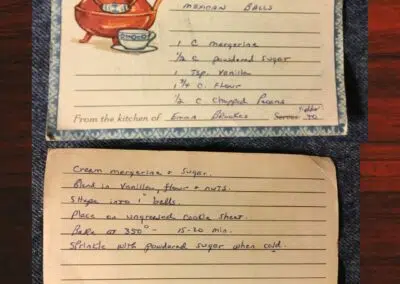 MEXICAN BALLS
1 C margerine
1/2 C powdered sugar
1 Tsp. Vanilla
1 3/4 C. Flour
1/2 C Chopped Pecans
From the kitchen of Emma Brookes Serves Yields 40
Cream margerine + sugar.
Blend in Vanilla, flour + nuts.
Shape into 1" balls.
Place on ungreased cookie sheet.
Bake at 350° - 15-20 min.
Sprinkle with powdered sugar when cold.